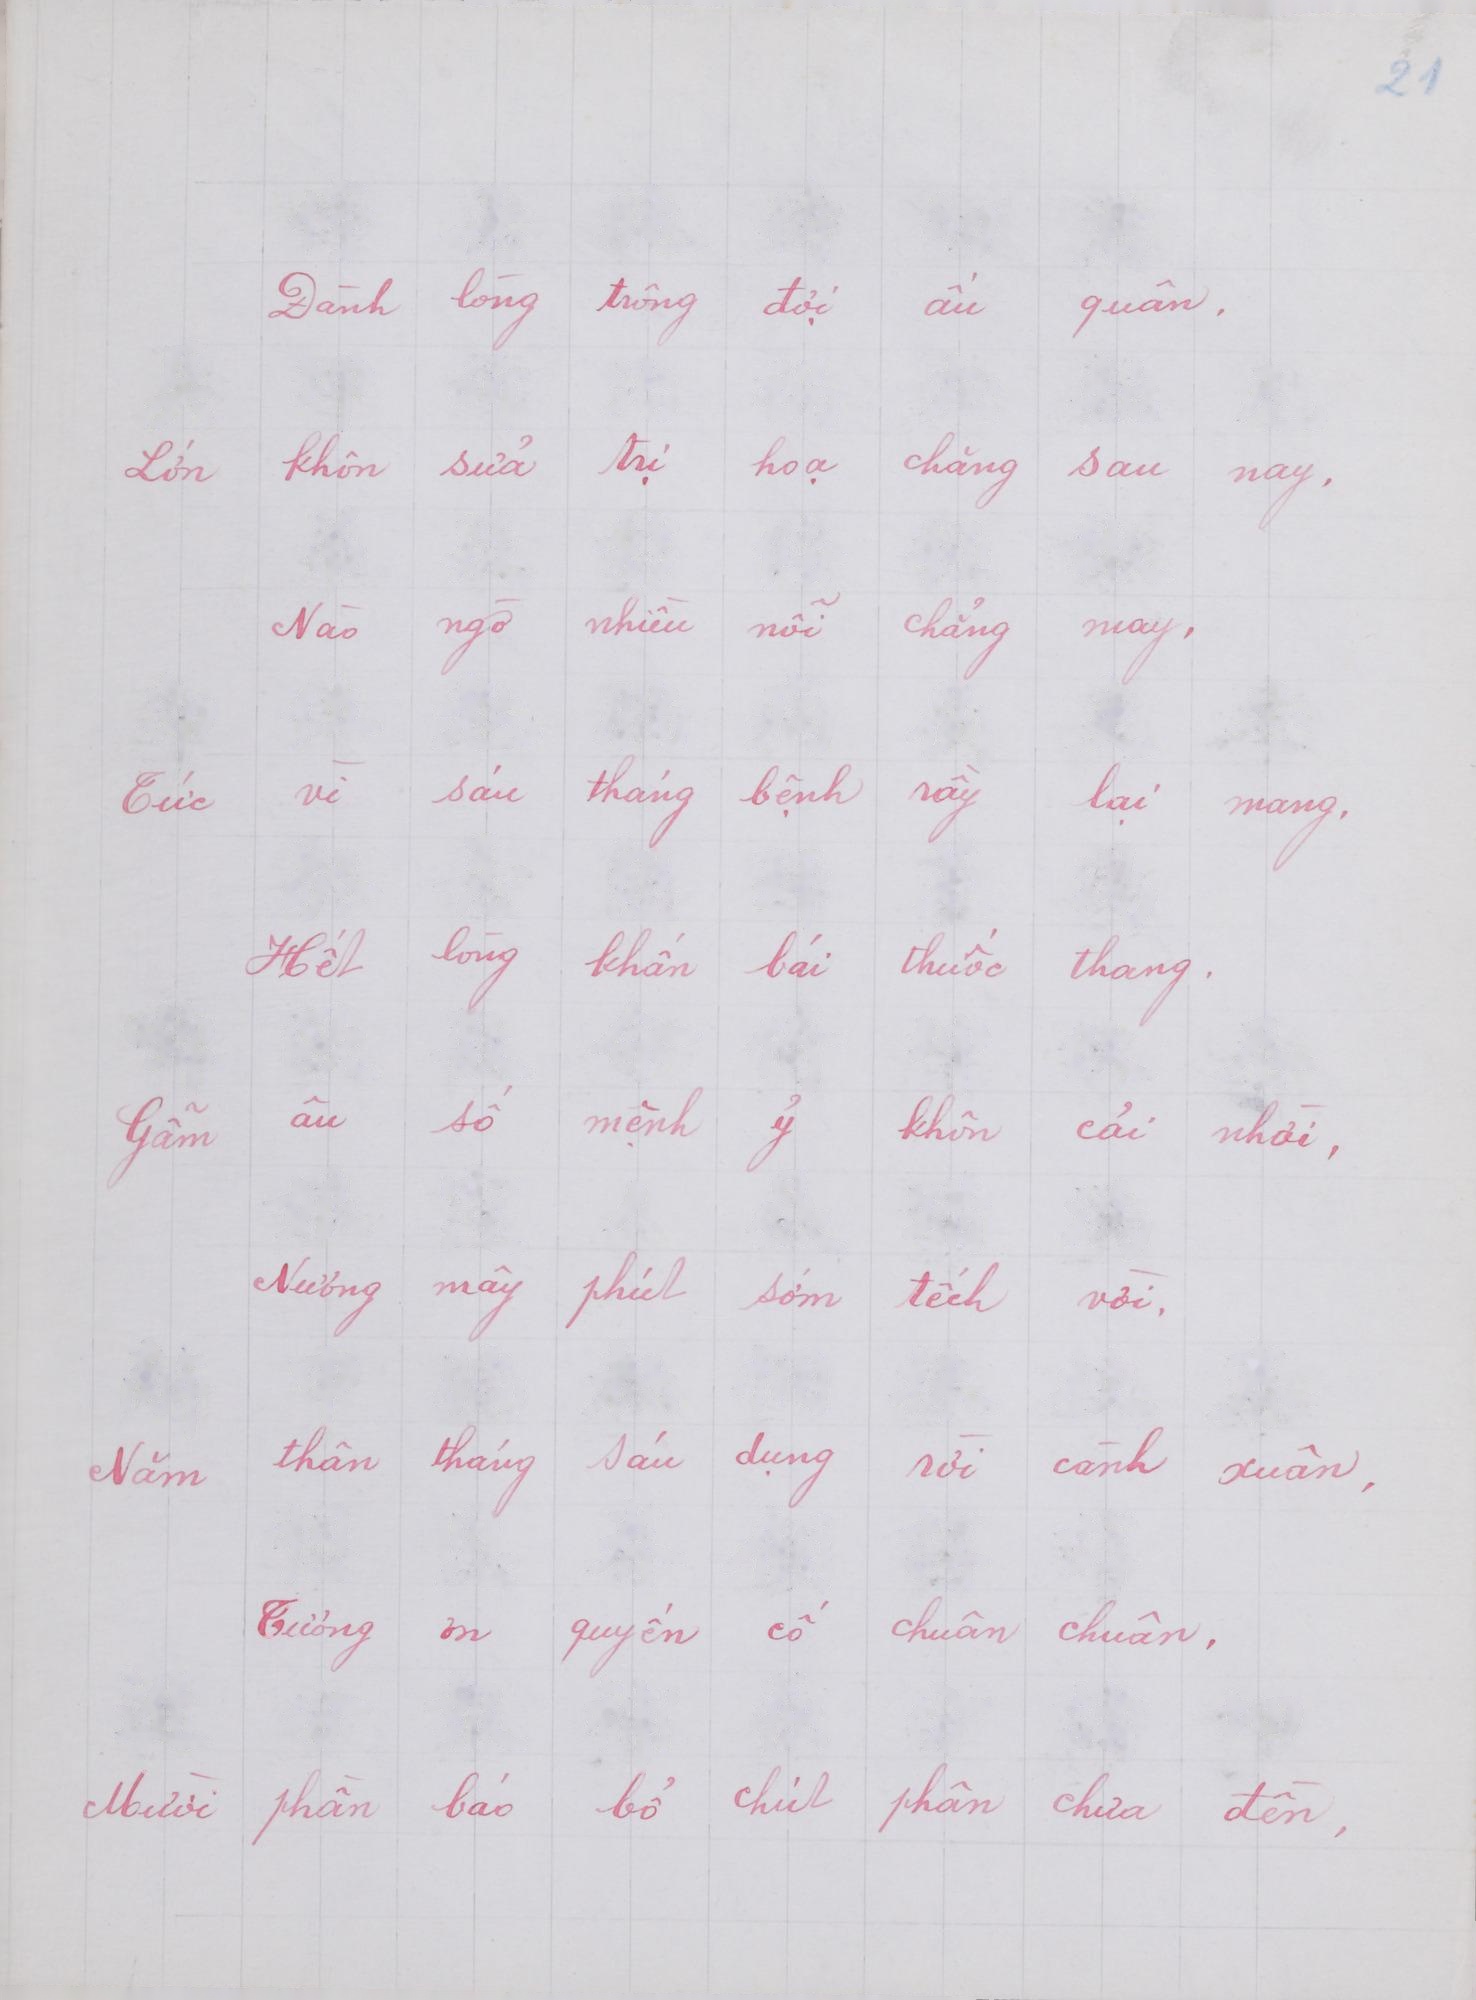 21
Dành lòng trông đợi ấu quân.
Lớn khôn sửa trị hoạ chăng sau nay,
Nào ngờ nhiều nỗi chẳng may,
Tức vì sáu tháng bệnh rầy lại mang,
Hết lòng khấn bái thuốc thang.
Gẫm âu số mệnh ỷ khôn cải nhời,
Nương mây phút sớm tếch vời,
Năm thân tháng sáu dụng rời cành xuân,
Tưởng ơn quyến cố chuân chuân,
Mười phần báo bổ chút phân chưa đền,